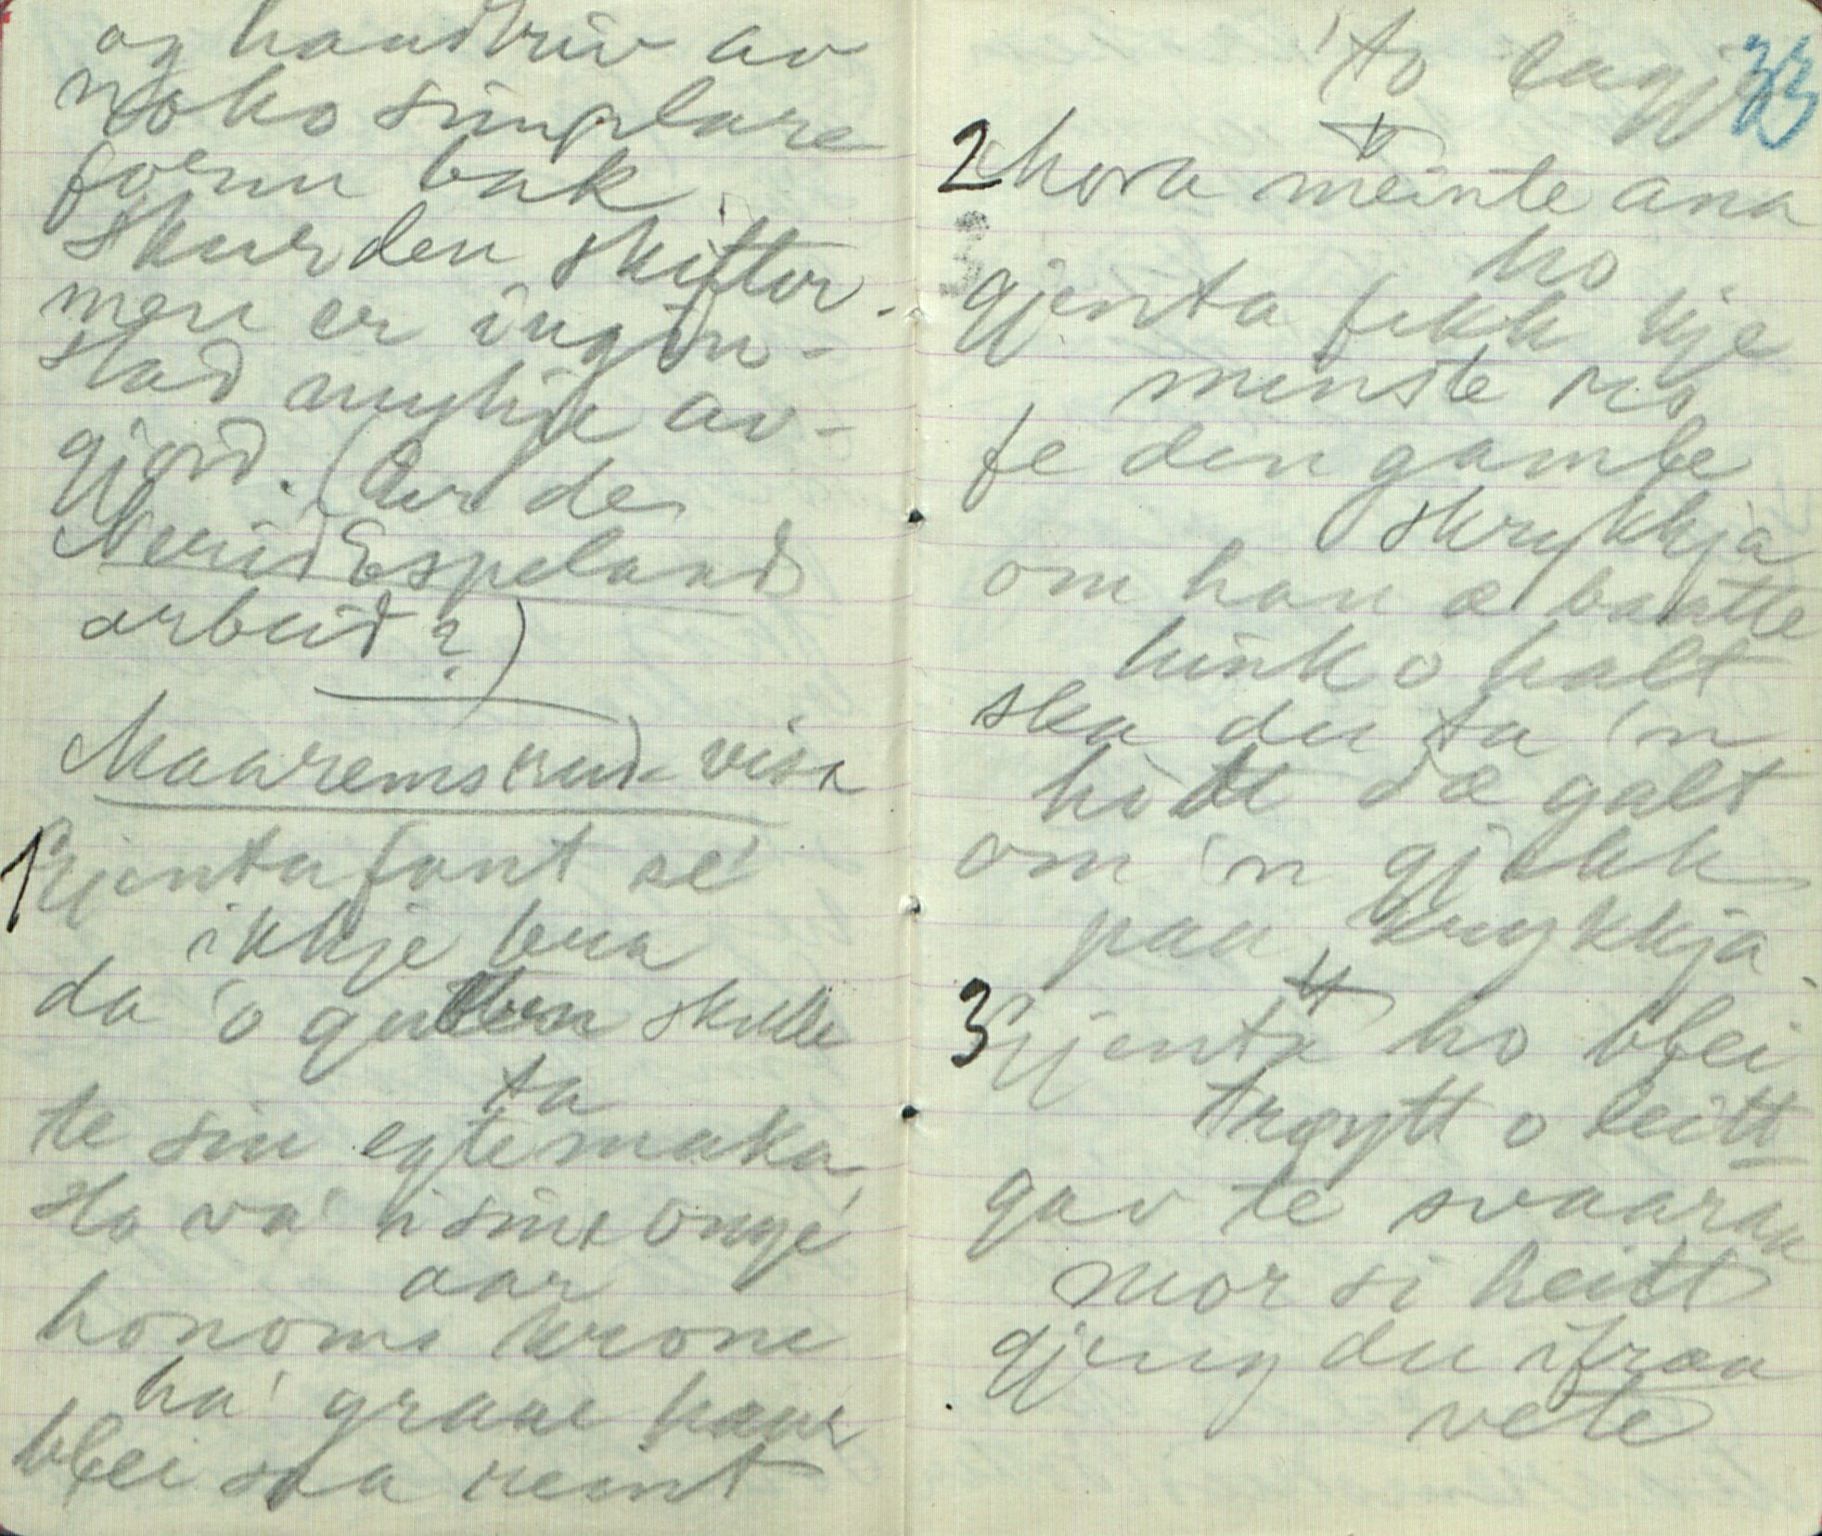 og handkriv av
noko simplare
form bak.
Skurden skiftar
men er ingin-
stad mykje av-
gjord. (Av de
Nerid Espelands
arbeid?)
Maaremsrud-visa
1 Gjenta fant sé
ikkje bua
da 'o guten skulle
ta
te sin egtemaka,
Ho va' i sine onge
aar
honoms krone
ha' graae haar
blei saa reint
'to lagje
33
2 Mora meinte ana
ho
gjenta fekk kje
minste ris
fe din gamle
skrykkja
om han æ baatte
hink o halt
ska du ta 'n
hott dæ galt
om 'n gjekk
paa krykkja.
3 Gjenta ho blei
trøytt o leitt
gav te svaaran
mor si heitt
gjeng du ifraa
vete